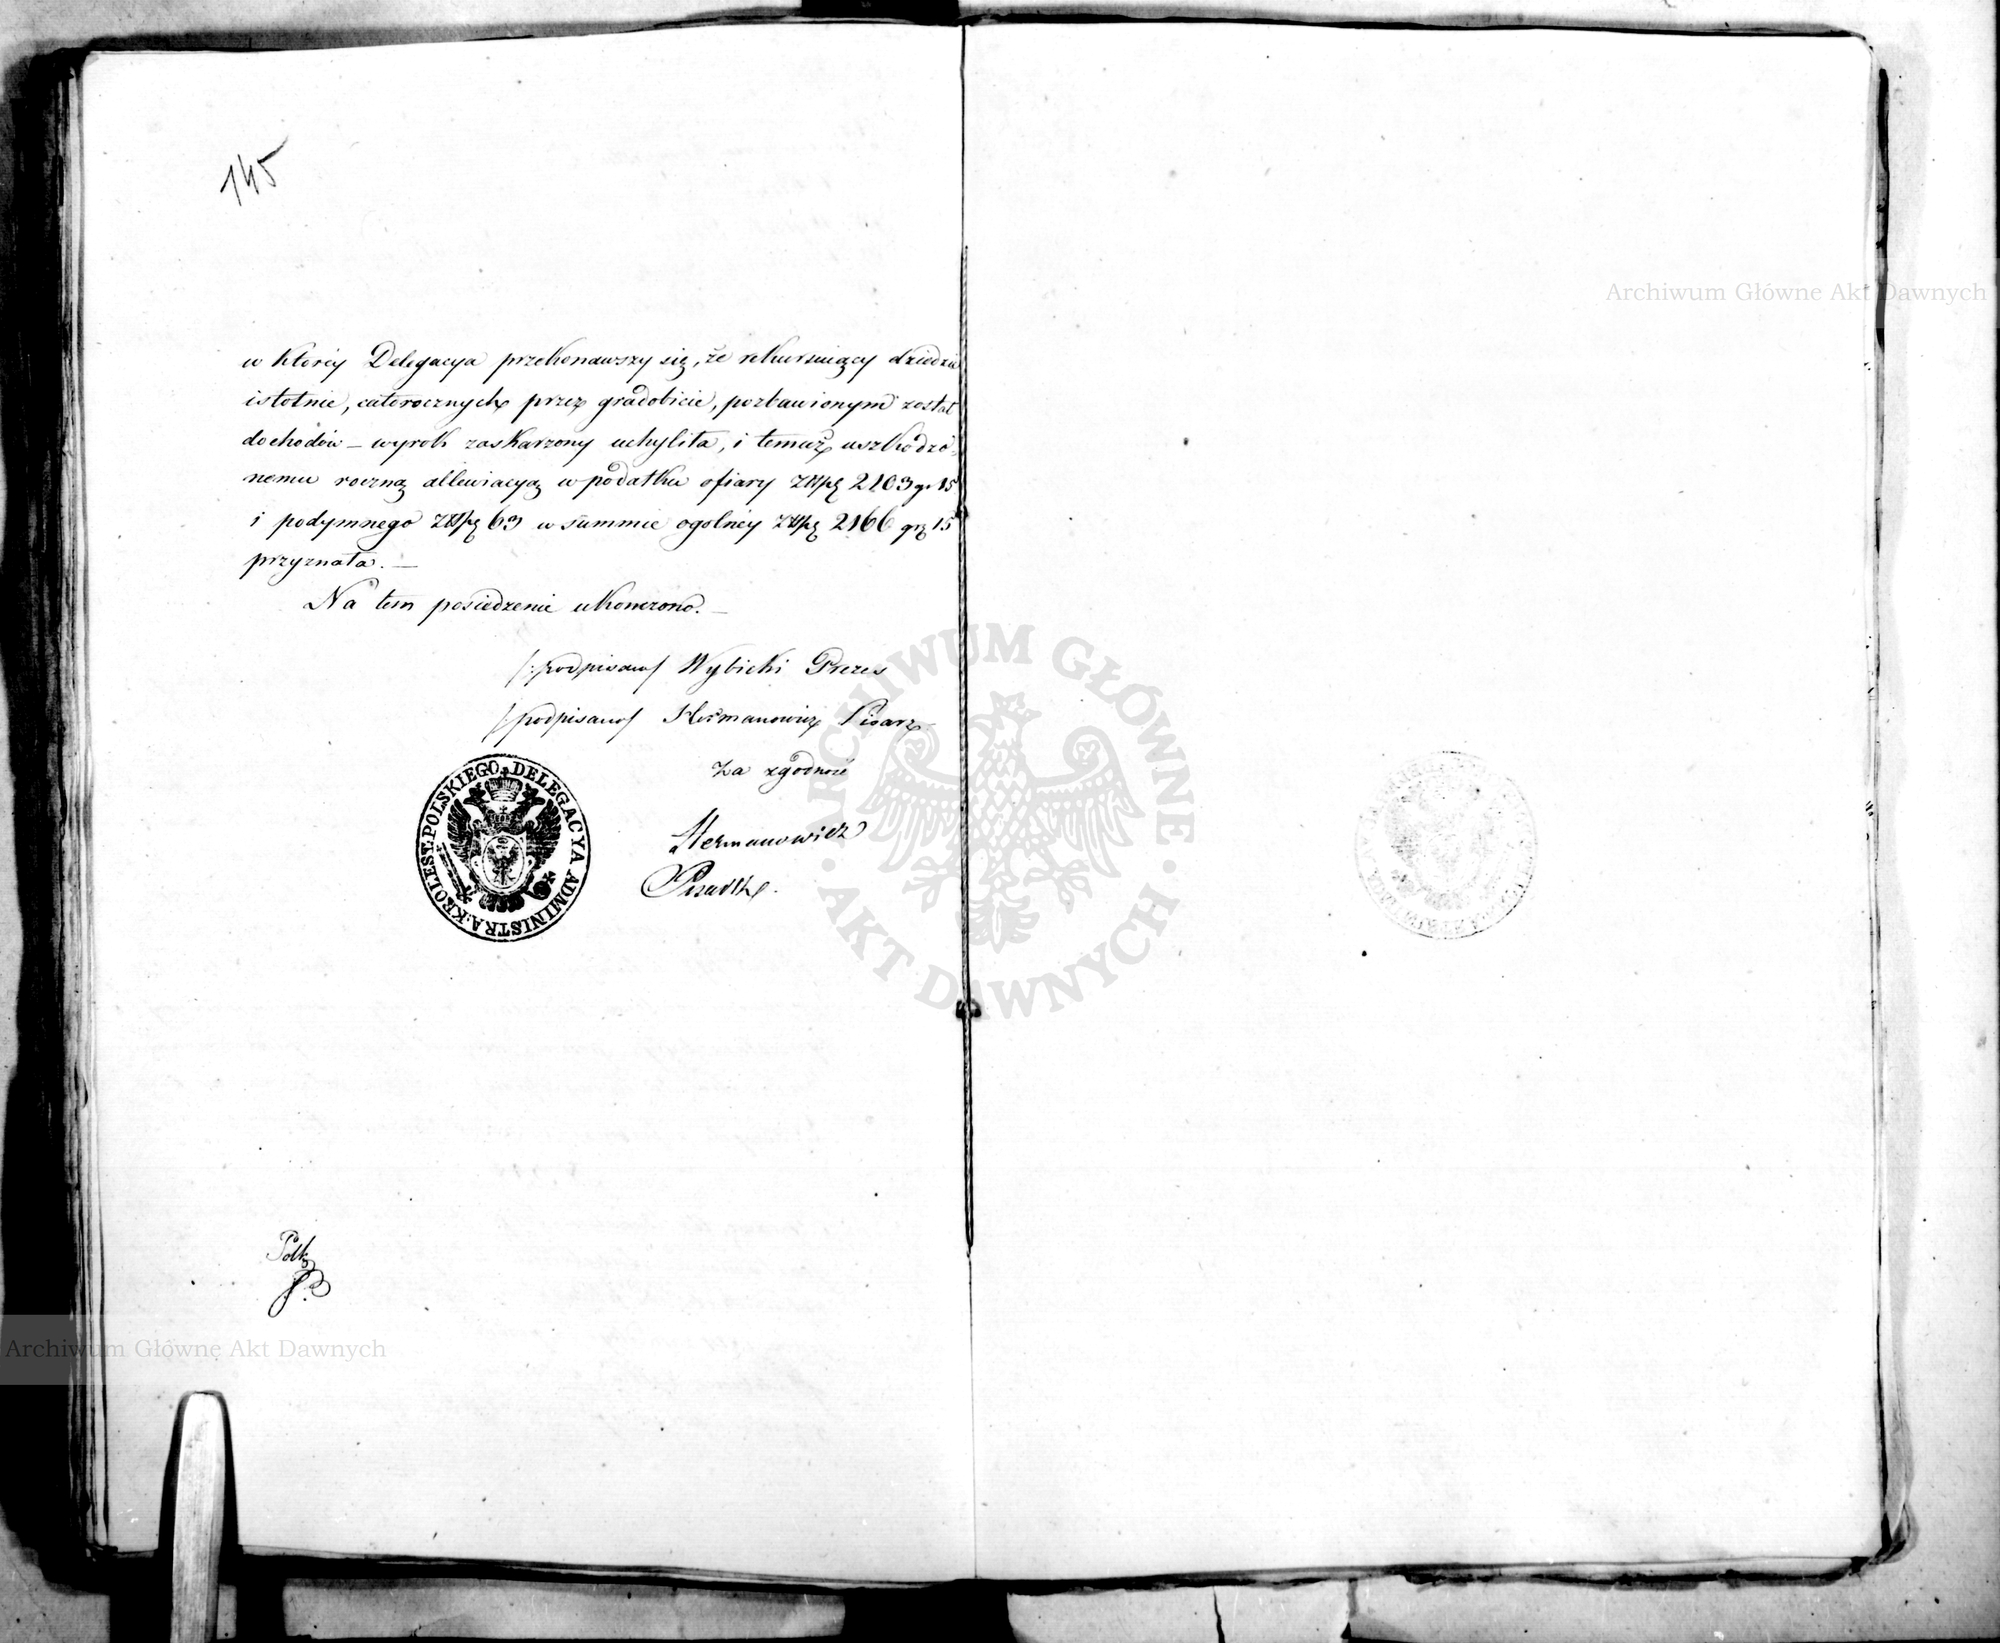 145
w któréy Delegacya przekonawszy się, że rekursuiący dziedzic
istotnie, całorocznych przez gradobicie, pozbawionym został
dochodów – wyrok zaskarżony uchyliła, i temuż uszkodzo-
nemu roczną allewiacyą w podatku ofiary 2103 gr 15
i podymnego 63 w summie ogolnéy 2166 gr 15
przyznała. —
Na tem posiedzenie ukończono. —
/:podpisano/ Wybicki Prezes
/podpisano/ Hermanowicz Pisarz
Za zgodność
Hermanowicz
KROLEST: POLSKIEGO. DELEGACYA ADMINISTRA.
Archiwum Główne Akt Dawnych
ARCHIWUM GŁÓWNE · AKT DAWNYCH ·
Archiwum Główne Akt Dawnych